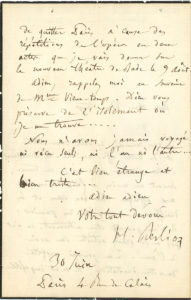 de quitter Paris, à cause des
répétitions de l'opéra en deux
actes que je vais donner sur
le nouveau théâtre de Bade le 9 août.
adieu, rappelez moi au souvenir
de Mme Vieux-temps. Dieu vous
préserve de l'isolement où
je me trouve.....
Nous n'avons jamais voyagé
ni vécu seuls, ni l'un ni l'autre....
C'est bien étrange et
bien triste....
adieu adieu
Votre tout dévoué
H. Berlioz
30 Juin
Paris 4 Rue de Calais